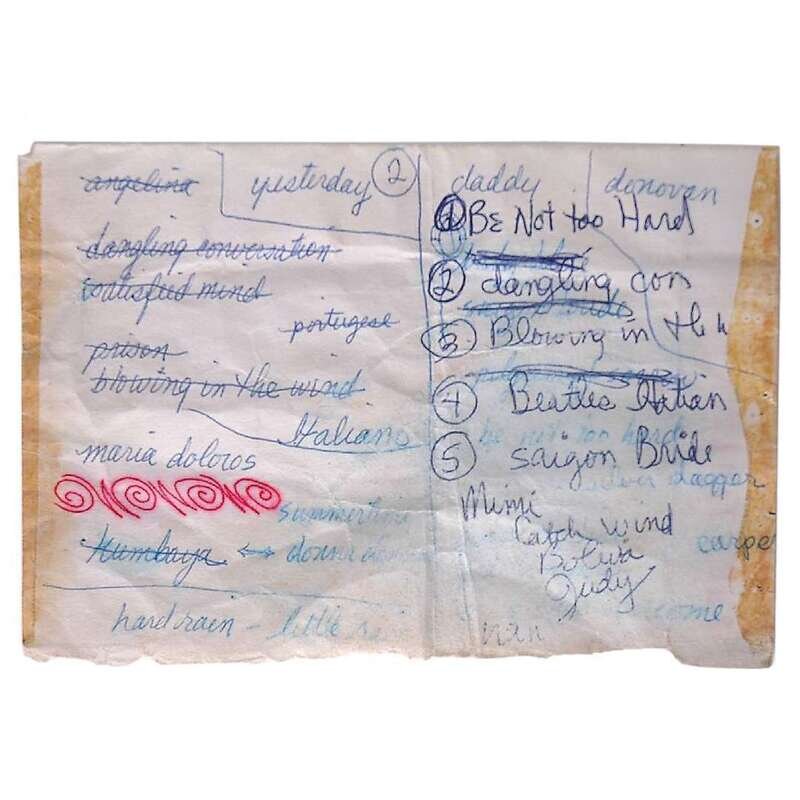 angelina
yesterday 2
dangling conversation
satisfied mind
portugese
prison
blowing in the wind
Italiano
maria doloros
summertime
Kumbaya ↔ donna
hard rain - little
daddy donovan
1 BE Not too Hard
2 dangling con
3 Blowing in the w
4 Beatles Italian
be not too hard
5 Saigon Bride
silver dagger
Mimi
Catch wind
carpe
Judy
come